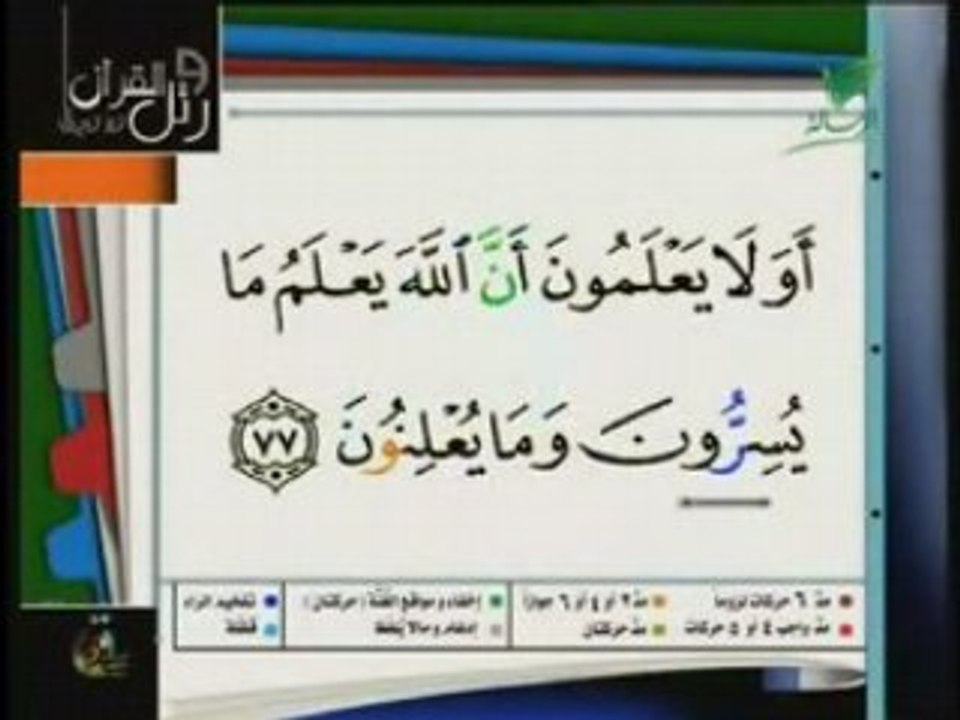 ورتل القرآن
ترتيلا
الرسالة
أَوَلَا يَعْلَمُونَ أَنَّ ٱللَّهَ يَعْلَمُ مَا
يُسِرُّونَ وَمَا يُعْلِنُونَ ٧٧
مدّ ٦ حركات لزوما
مدّ ٢ أو ٤ أو ٦ جوازا
إخفاء ومواقع الغنّة (حركتان)
تفخيم الراء
مدّ واجب ٤ أو ٥ حركات
مدّ حركتان
إدغام وما لا يُلفظ
قلقلة